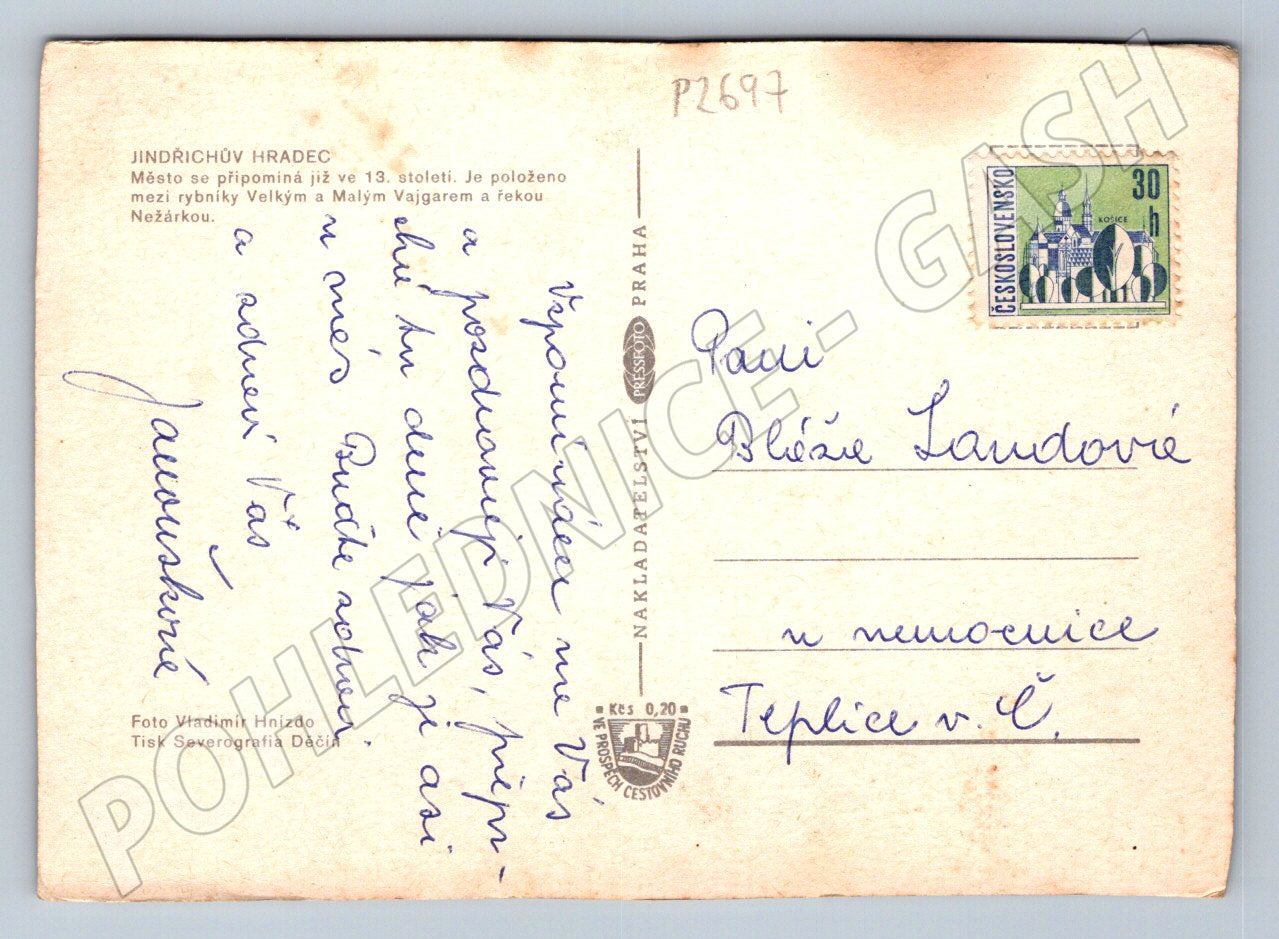 P2697
JINDŘICHŮV HRADEC
Město se připomíná již ve 13. století. Je položeno
mezi rybníky Velkým a Malým Vajgarem a řekou
Nežárkou.
Vzpomínáme na Vás
a pozdravují Vás,
jak je asi
u nás Buďte zdrávi.
a zdraví Vás
Janouškové
Foto Vladimír Hnízdo
Tisk Severografia Děčín
NAKLADATELSTVÍ PRESSFOTO PRAHA
Kčs 0,20
VE PROSPĚCH CESTOVNÍHO RUCHU
ČESKOSLOVENSKO
30 h
KOŠICE
Paní
Bláže Landové
u nemocnice
Teplice v. Č.
POHLEDNICE - GASH